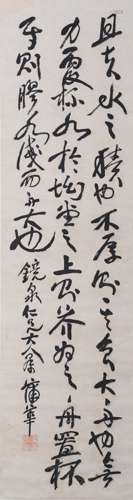 且夫水之積也不厚則其負大舟也無
力覆杯水於坳堂之上則芥為之舟置杯
焉則膠水淺而舟大也
鏡泉仁兄大人屬 蒲華